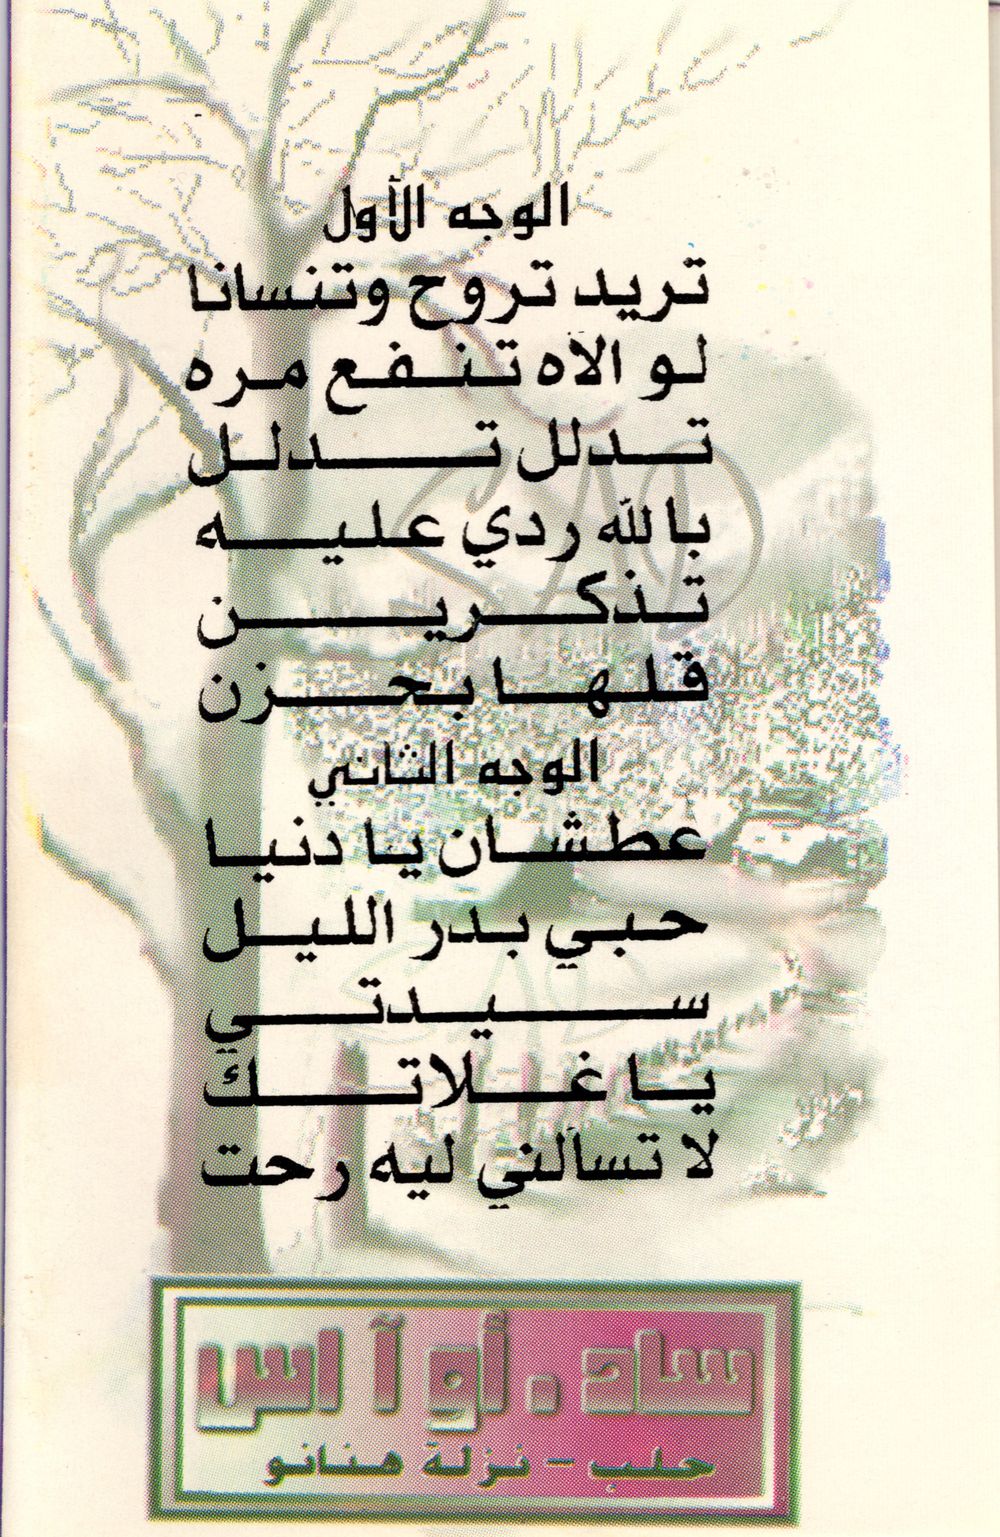 الوجه الأول
تريد تروح وتنسانا
لو الآه تنفع مره
تدلل تدلل
بالله ردي عليه
تذكرين
قلها بحزن
الوجه الثاني
عطشان يا دنيا
حبي بدر الليل
سيدتي
يا غلاتك
لا تسألني ليه رحت
ساد.أو آ اس
حلب - نزلة هنانو